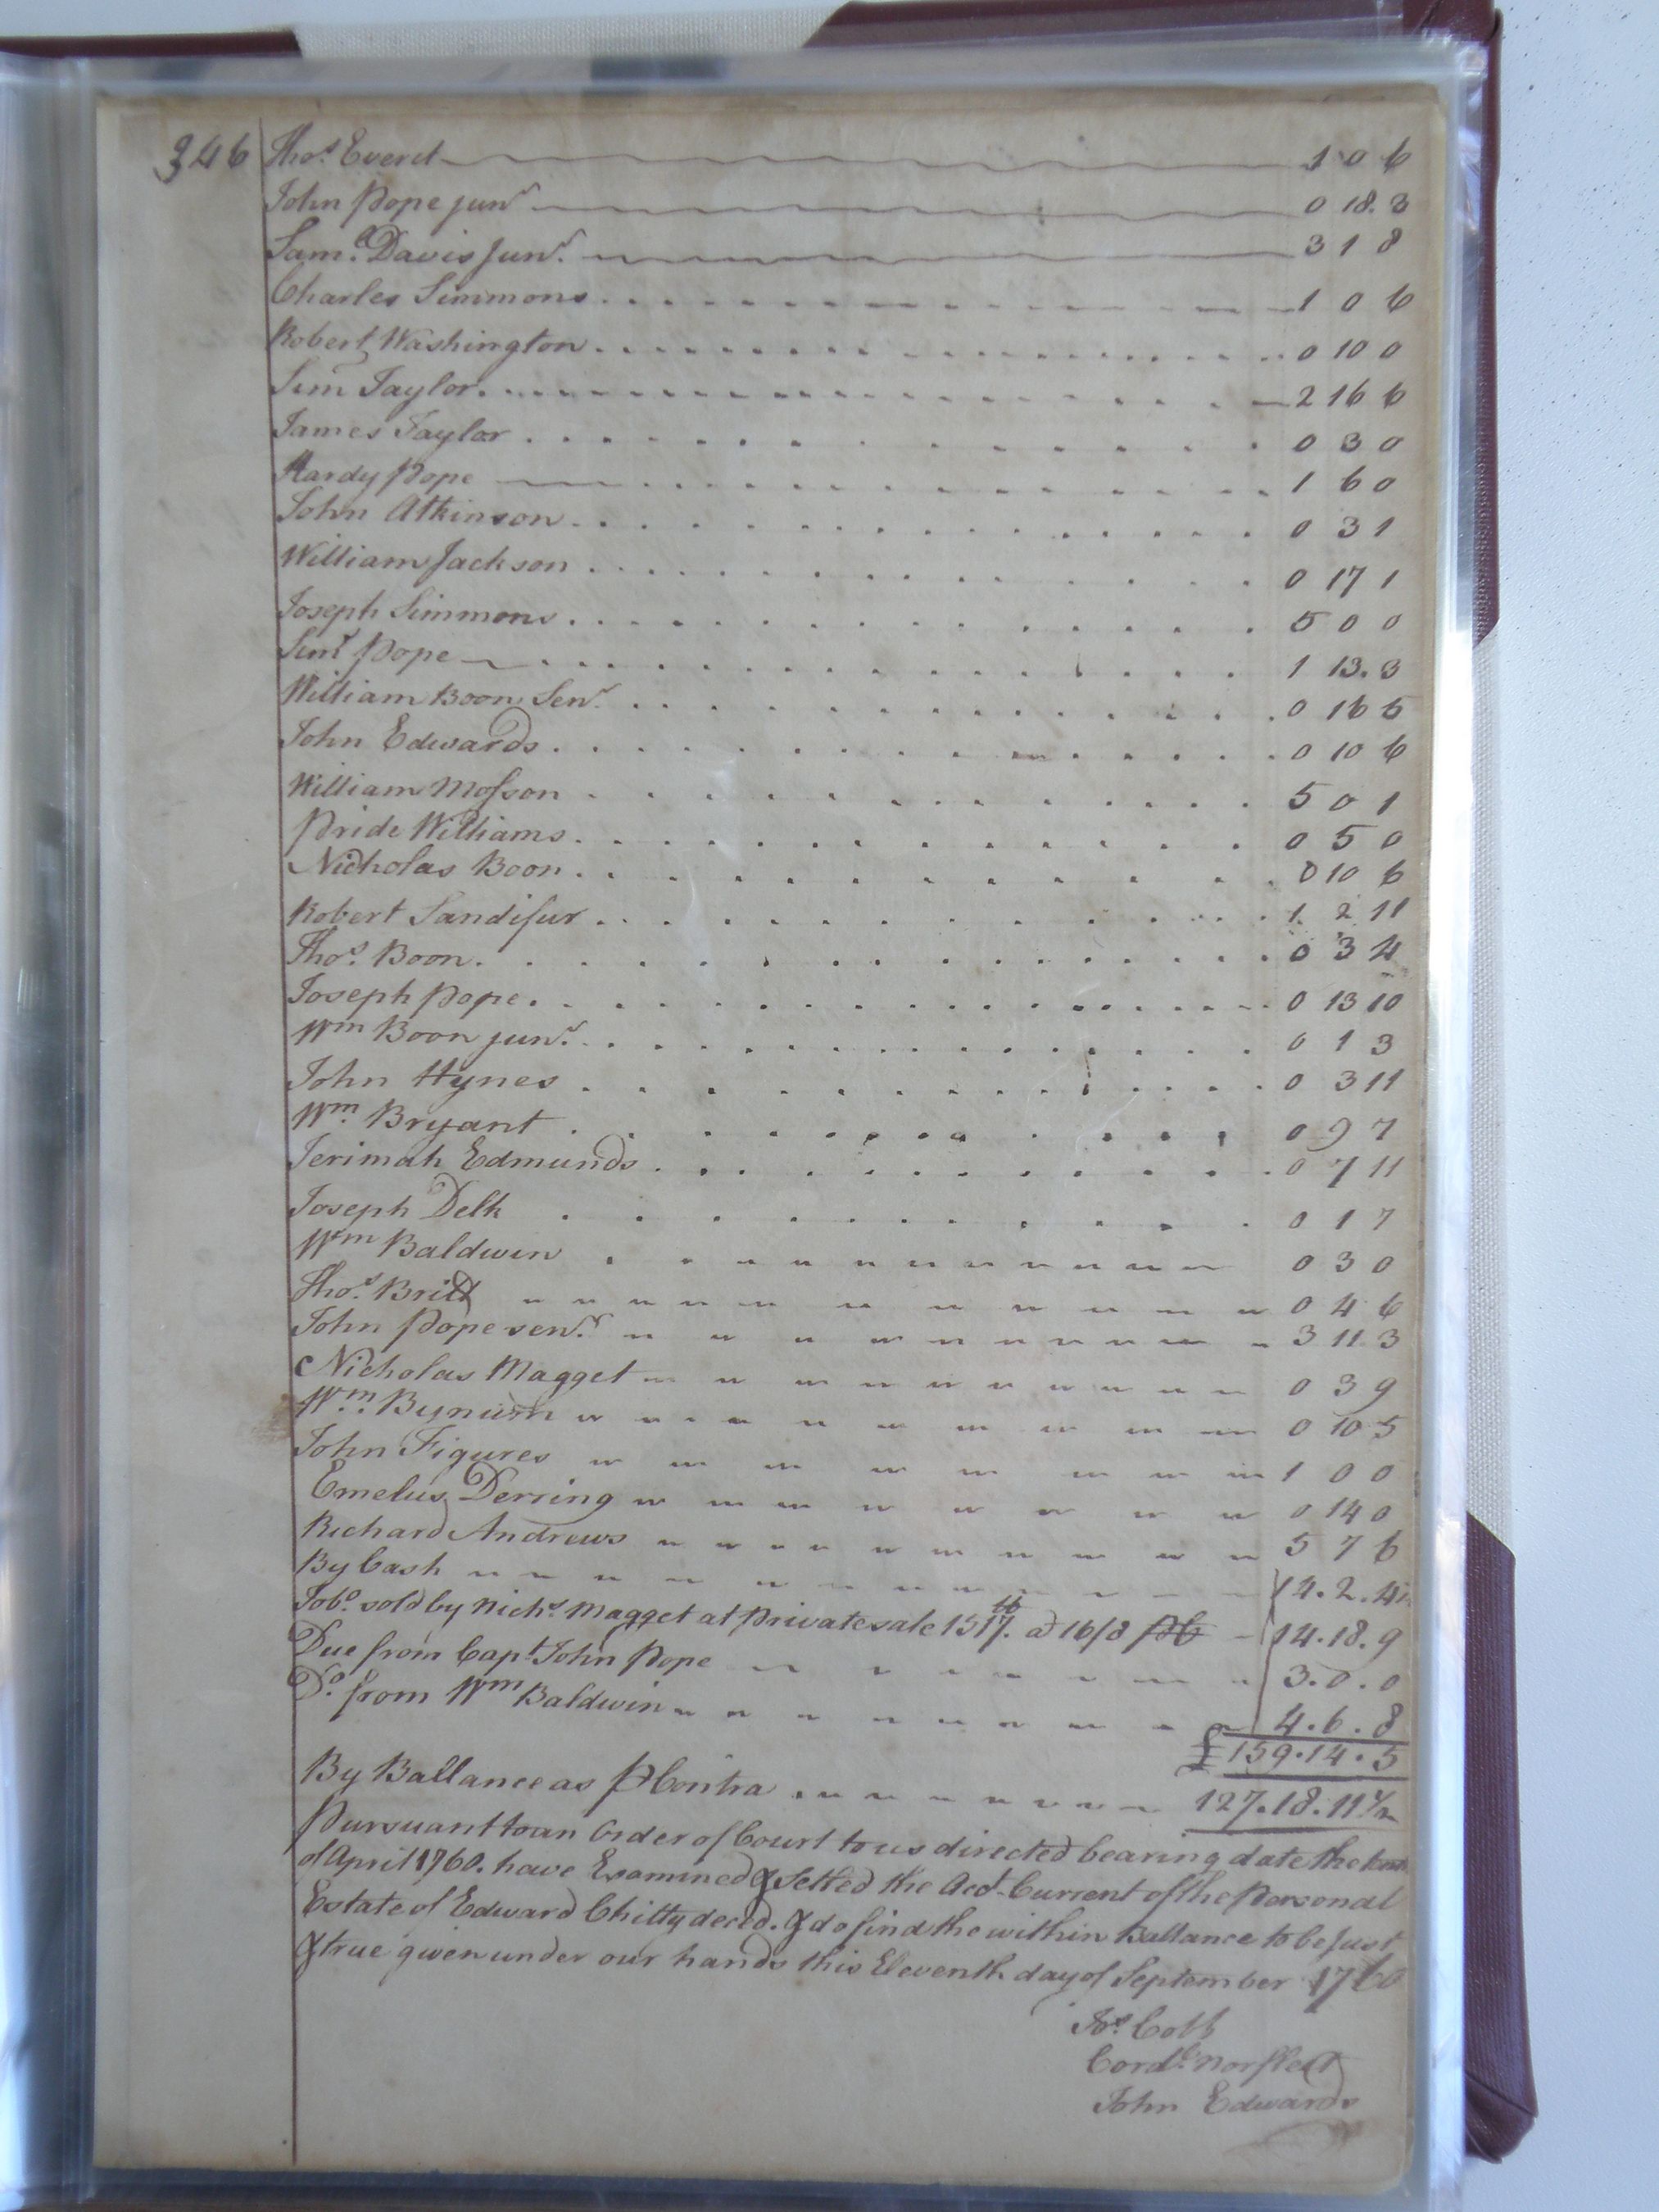 346 Thos. Everet 1 0 6
John Pope junr 0 18. 3
Saml. Davis Junr. 3 1 8
Charles Simmons 1 0 6
Robert Washington 0 10 0
Sim Taylor 2 16 6
James Taylor 0 3 0
Hardy Pope 1 6 0
John Atkinson 0 3 1
William Jackson 0 17 1
Joseph Simmons 5 0 0
Simn Pope 1 13. 3
William Boon Senr. 0 16 5
John Edwards 0 10 6
William Mosson 5 0 1
Pride Williams 0 5 0
Nicholas Boon 0 10 6
Robert Sandifur 1 2 11
Thos. Boon 0 3 4
Joseph Pope 0 13 10
Wm Boon junr. 0 1 3
John Hynes 0 3 11
Wm. Bryant 0 9 7
Jerimah Edmunds 0 7 11
Joseph Delk 0 1 7
Wm Baldwin 0 3 0
Thos. Britt 0 4 6
John Pope senr. 3 11 3
Nicholas Magget 0 3 9
Wm. Bynum 0 10 5
John Figures 1 0 0
Emelus Derring 0 14 0
Richard Andrews 5 7 6
By Cash 14. 2. 4
Tobo. sold by Nichs. Magget at Private sale 1517. lb a 16/8 14. 18. 9
Due from Capt John Pope 3. 0. 0
Do. from Wm Baldwin 4. 6. 8
£159. 14. 5
By Ballance as P Contra 127. 18. 11 1/2
Pursuant to an Order of Court to us directed bearing date the
of April 1760. have Examined & Setled the Acct. Current of the Personal
Estate of Edward Chitty decd. & do find the within Ballance to be just
& true given under our hands this Eleventh day of September 1760
Jos. Cobb
Cordl. Norfleet
John Edwards